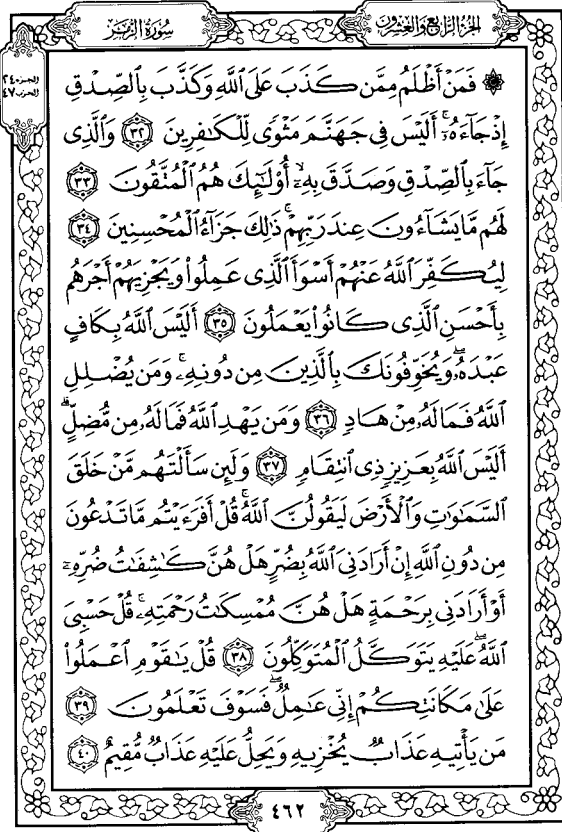 الجزء الرابع والعشرون
سورة الزمر
الجزء ٢٤
الحزب ٤٧
۞ فَمَنْ أَظْلَمُ مِمَّن كَذَبَ عَلَى ٱللَّهِ وَكَذَّبَ بِٱلصِّدْقِ
إِذْ جَآءَهُۥٓ ۚ أَلَيْسَ فِى جَهَنَّمَ مَثْوًى لِّلْكَٰفِرِينَ ٣٢ وَٱلَّذِى
جَآءَ بِٱلصِّدْقِ وَصَدَّقَ بِهِۦٓ ۙ أُو۟لَٰٓئِكَ هُمُ ٱلْمُتَّقُونَ ٣٣
لَهُم مَّا يَشَآءُونَ عِندَ رَبِّهِمْ ۚ ذَٰلِكَ جَزَآءُ ٱلْمُحْسِنِينَ ٣٤
لِيُكَفِّرَ ٱللَّهُ عَنْهُمْ أَسْوَأَ ٱلَّذِى عَمِلُوا۟ وَيَجْزِيَهُمْ أَجْرَهُم
بِأَحْسَنِ ٱلَّذِى كَانُوا۟ يَعْمَلُونَ ٣٥ أَلَيْسَ ٱللَّهُ بِكَافٍ
عَبْدَهُۥ ۖ وَيُخَوِّفُونَكَ بِٱلَّذِينَ مِن دُونِهِۦ ۚ وَمَن يُضْلِلِ
ٱللَّهُ فَمَا لَهُۥ مِنْ هَادٍ ٣٦ وَمَن يَهْدِ ٱللَّهُ فَمَا لَهُۥ مِن مُّضِلٍّ ۗ
أَلَيْسَ ٱللَّهُ بِعَزِيزٍ ذِى ٱنتِقَامٍ ٣٧ وَلَئِن سَأَلْتَهُم مَّنْ خَلَقَ
ٱلسَّمَٰوَٰتِ وَٱلْأَرْضَ لَيَقُولُنَّ ٱللَّهُ ۚ قُلْ أَفَرَءَيْتُم مَّا تَدْعُونَ
مِن دُونِ ٱللَّهِ إِنْ أَرَادَنِىَ ٱللَّهُ بِضُرٍّ هَلْ هُنَّ كَٰشِفَٰتُ ضُرِّهِۦٓ
أَوْ أَرَادَنِى بِرَحْمَةٍ هَلْ هُنَّ مُمْسِكَٰتُ رَحْمَتِهِۦ ۚ قُلْ حَسْبِىَ
ٱللَّهُ ۖ عَلَيْهِ يَتَوَكَّلُ ٱلْمُتَوَكِّلُونَ ٣٨ قُلْ يَٰقَوْمِ ٱعْمَلُوا۟
عَلَىٰ مَكَانَتِكُمْ إِنِّى عَٰمِلٌ ۖ فَسَوْفَ تَعْلَمُونَ ٣٩
مَن يَأْتِيهِ عَذَابٌ يُخْزِيهِ وَيَحِلُّ عَلَيْهِ عَذَابٌ مُّقِيمٌ ٤٠
٤٦٢